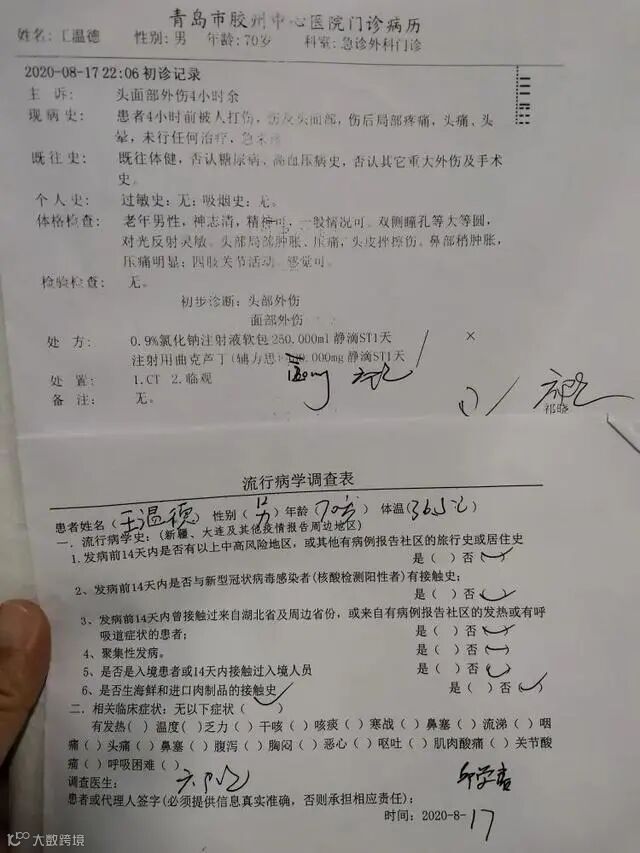 青岛市胶州中心医院门诊病历
姓名: 王温德 性别: 男 年龄: 70岁 科室: 急诊外科门诊
2020-08-17 22:06 初诊记录
主 诉: 头面部外伤4小时余
现 病 史: 患者4小时前被人打伤, 伤及头面部, 伤后局部疼痛, 头痛、头
晕, 未行任何治疗, 急来诊
既 往 史: 既往体健, 否认糖尿病、高血压病史, 否认其它重大外伤及手术
史。
个 人 史: 过敏史: 无; 吸烟史: 无。
体格检查: 老年男性, 神志清, 精神可, 一般情况可。双侧瞳孔等大等圆,
对光反射灵敏。头部局部肿胀、压痛, 头皮挫擦伤。鼻部稍肿胀,
压痛明显; 四肢关节活动、感觉可。
检验检查: 无。
初步诊断: 头部外伤
面部外伤
处 方: 0.9%氯化钠注射液软包 250.000ml 静滴ST1天 ×
注射用曲克芦丁(辅方思) 0.000mg 静滴ST1天
处 置: 1.CT 2.临观
备 注: 无。
祁晓
流行病学调查表
患者姓名(王温德) 性别(男) 年龄(70岁) 体温(36.5℃)
一. 流行病学史: (新疆、大连及其他疫情报告周边地区)
1. 发病前14天内是否有以上中高风险地区, 或其他有病例报告社区的旅行史或居住史
是( ) 否(✓)
2、发病前14天内是否与新型冠状病毒感染者(核酸检测阳性者)有接触史;
是( ) 否(✓)
3、发病前14天内曾接触过来自湖北省及周边省份, 或来自有病例报告社区的发热或有呼
吸道症状的患者; 是( ) 否(✓)
4、聚集性发病。 是( ) 否(✓)
5、是否是入境患者或14天内接触过入境人员 是( ) 否(✓)
6、是否生海鲜和进口肉制品的接触史 是( ) 否(✓)
二. 相关临床症状: 无以下症状(✓)
有发热( ) 温度( ) 乏力( ) 干咳( ) 咳痰( ) 寒战( ) 鼻塞( ) 流涕( ) 咽
痛( ) 头痛( ) 鼻塞( ) 腹泻( ) 胸闷( ) 恶心( ) 呕吐( ) 肌肉酸痛( ) 关节酸
痛( ) 呼吸困难( )
调查医生:
患者或代理人签字(必须提供信息真实准确, 否则承担相应责任):
时间: 2020-8-17
大数跨境